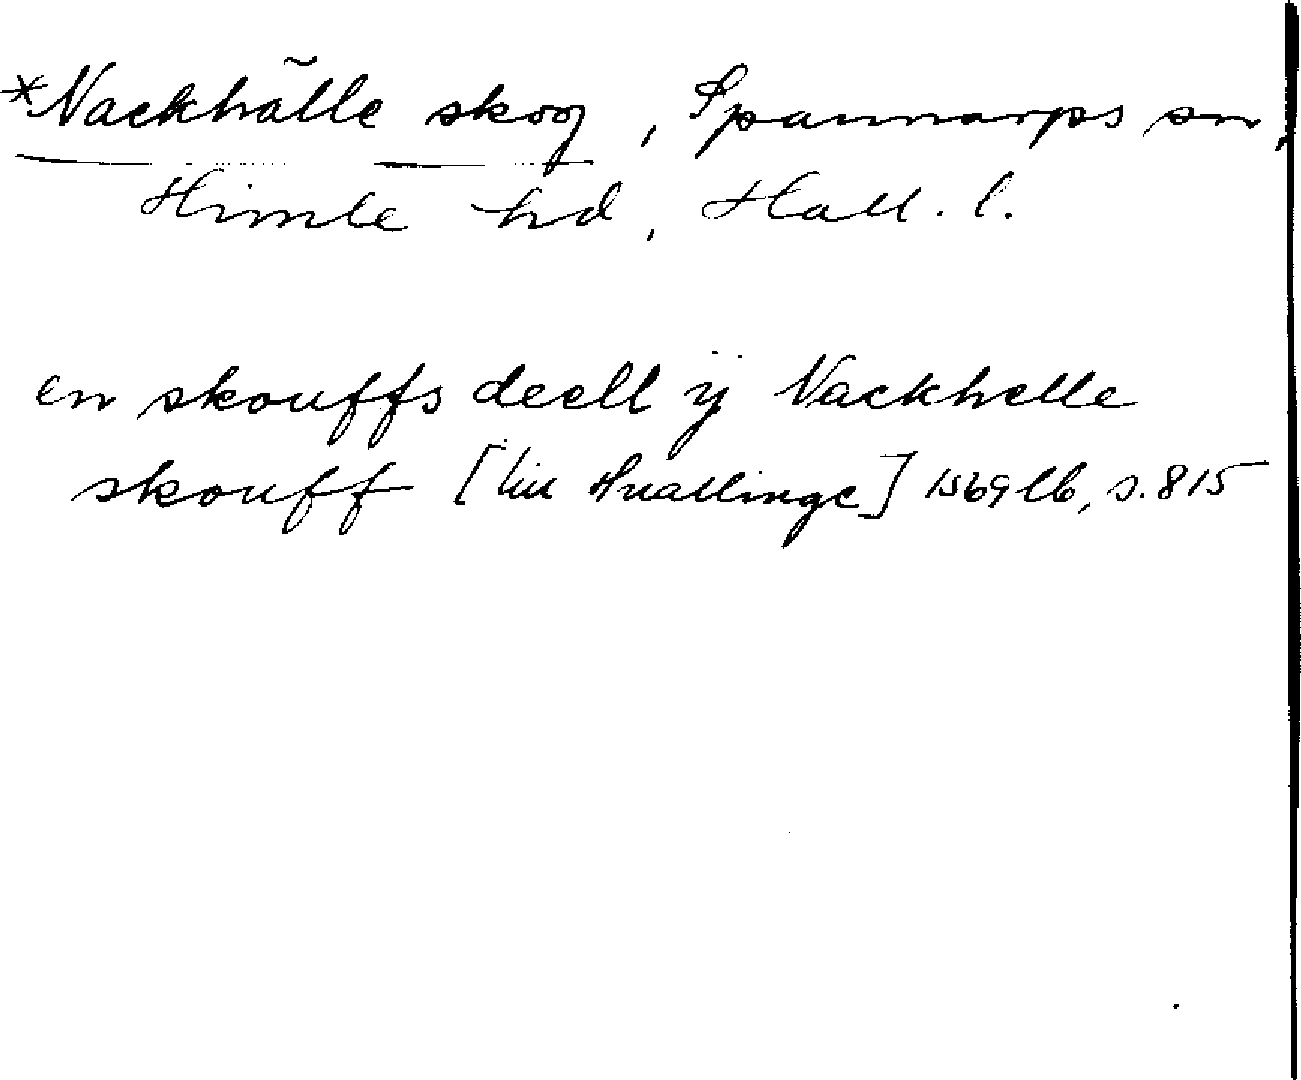 *Nackhälle skog, Spannarps sn,
Himle hd, Hall. l.
en skouffs deell ÿ Nackhelle
skouff [till Huallinge] 1569 lb, s. 815